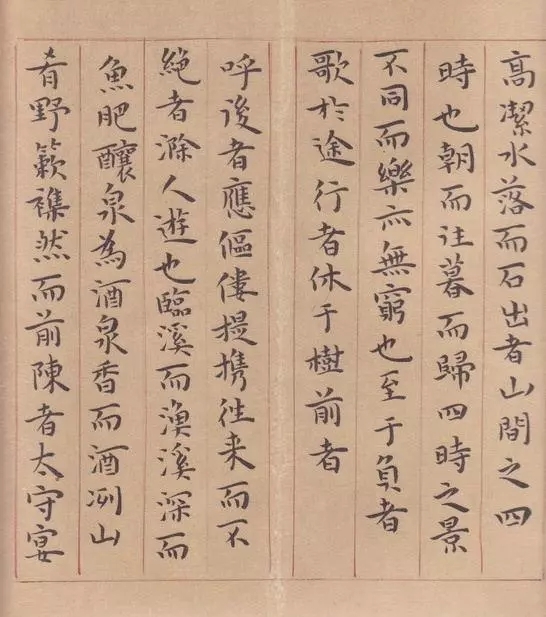 高潔水落而石出者山間之四
時也朝而往暮而歸四時之景
不同而樂亦無窮也至于負者
歌於途行者休于樹前者
呼後者應傴僂提攜往来而不
絶者滁人遊也臨溪而漁溪深而
魚肥釀泉為酒泉香而酒冽山
肴野蔌襍然而前陳者太守宴